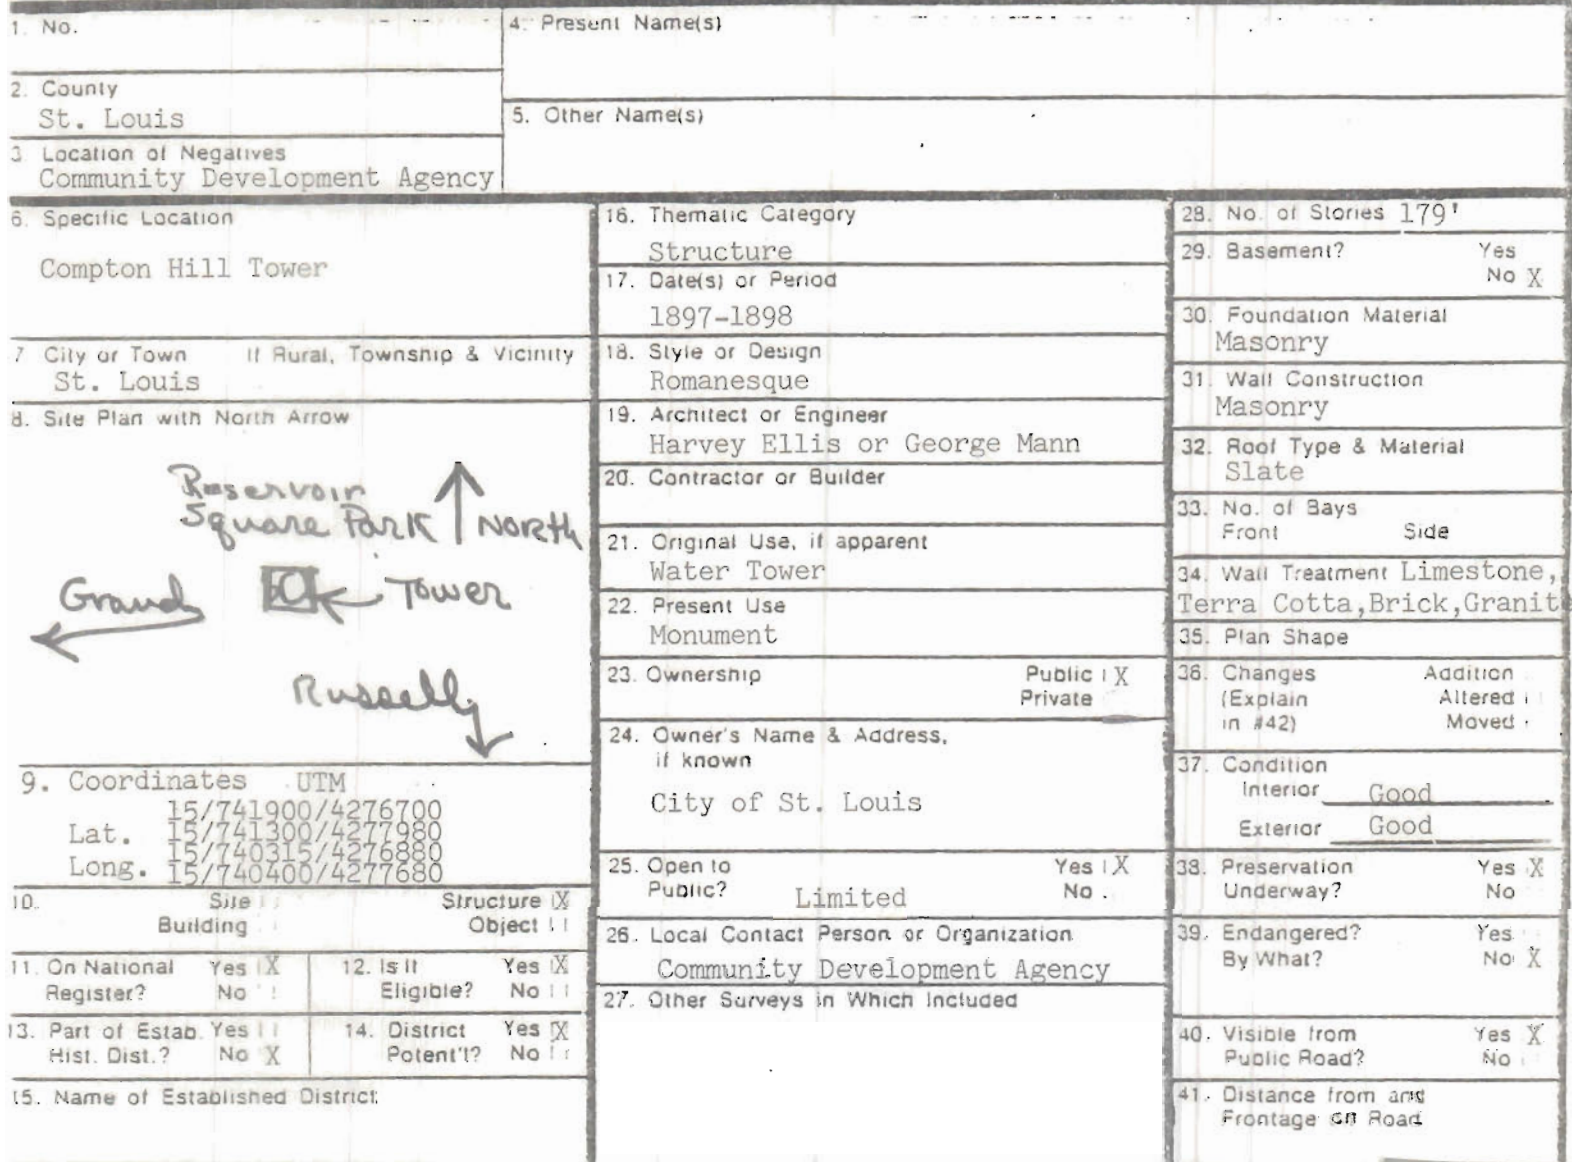 1. No.
4. Present Name(s)
2. County
St. Louis
5. Other Name(s)
3. Location of Negatives
Community Development Agency
6. Specific Location
Compton Hill Tower
7 City or Town If Rural, Township & Vicinity
St. Louis
8. Site Plan with North Arrow
Reservoir
Square Park
North
Grand
Tower
Russell
9. Coordinates UTM
15/741900/4276700
Lat. 15/741300/4277980
15/740315/4276880
Long. 15/740400/4277680
10. Site Structure X
Building Object
11. On National Yes X
Register? No
12. Is It Yes X
Eligible? No
13. Part of Estab. Yes
Hist. Dist.? No X
14. District Yes X
Potent'l? No
15. Name of Established District
16. Thematic Category
Structure
17. Date(s) or Period
1897-1898
18. Style or Design
Romanesque
19. Architect or Engineer
Harvey Ellis or George Mann
20. Contractor or Builder
21. Original Use, if apparent
Water Tower
22. Present Use
Monument
23. Ownership Public X
Private
24. Owner's Name & Address,
if known
City of St. Louis
25. Open to Yes X
Public? Limited No
26. Local Contact Person or Organization
Community Development Agency
27. Other Surveys in Which Included
28. No. of Stories 179'
29. Basement? Yes
No X
30. Foundation Material
Masonry
31. Wall Construction
Masonry
32. Roof Type & Material
Slate
33. No. of Bays
Front Side
34. Wall Treatment Limestone,
Terra Cotta,Brick,Granite
35. Plan Shape
36. Changes Addition
(Explain Altered
in #42) Moved
37. Condition
Interior Good
Exterior Good
38. Preservation Yes X
Underway? No
39. Endangered? Yes
By What? No X
40. Visible from Yes X
Public Road? No
41. Distance from and
Frontage on Road